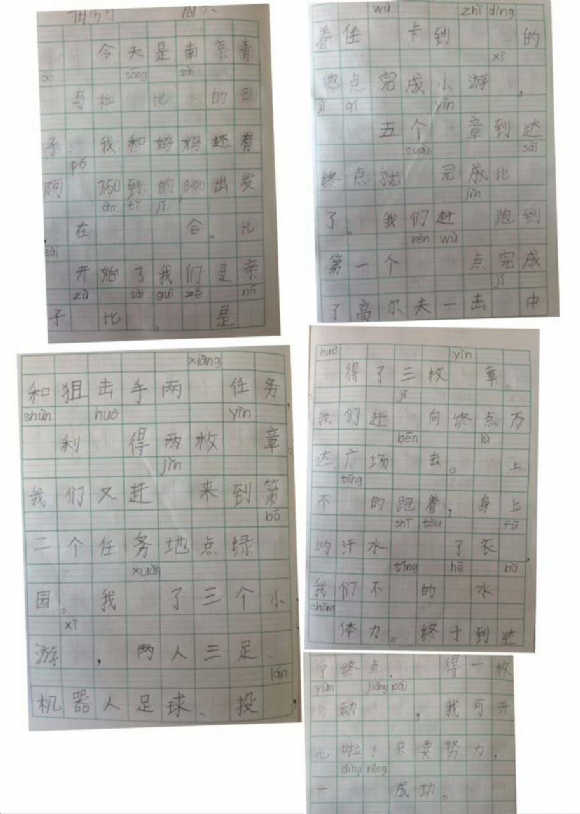 今天是南京青
ào sōng sài
马拉 比 的日
子 我和妈妈还有
pó
阿 7:50到的,8:00出发
在 合。比
sài
开始了我们是亲
zǔ sài guī zé ná
子 比 。 是
wù zhǐ dìng
着任 卡到 的
xì
地点完成小游 ,
jí qí yìn
五个 章到达
suàn sài
终点就 完成比
jǐn
了。我们赶 跑到
rèn wù
第一个 点完成
jī
了高尔夫一击 中
xiàng
和狙击手两 任务
shùn huò yìn
利 得两枚 章
jǐn
我们又赶 来到第
bó
二个任务地点绿
xuàn
园。我 了三个小
xì
游 ,两人三足、
lán
机器人足球、投
huò yìn
得了三枚 章。
jí
我们赶 向终点万
bēn lù
达广场 去。 上
tíng
不 的跑着,身上
shī tòu
的汗水 了衣
tíng hē bǔ
我们不 的 水
chōng
体力。终于到达
了终点, 得一枚
yùn jiǎng pái
动 ,我可开
心啦!只要努力,
dìng néng
一 成功。